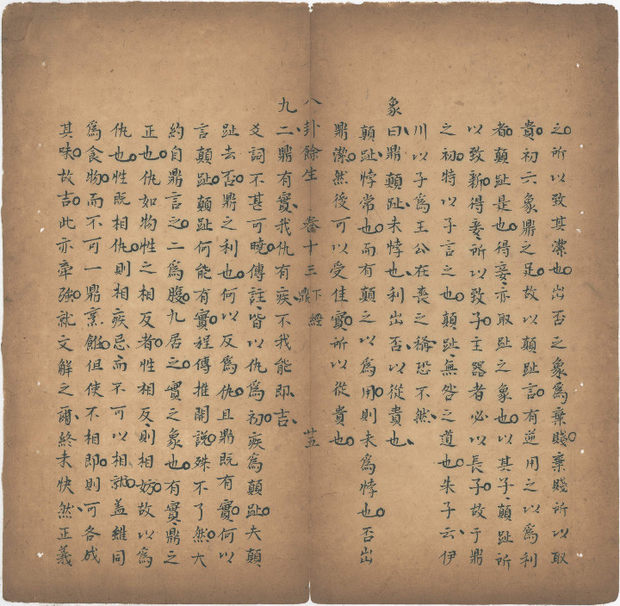 之所以致其潔也出否之象爲棄賤棄賤所以取
貴初六象鼎之足故以顛趾言有逆用之以爲利
者顛趾是也得妾亦取趾之象也以其子顛趾所
以致新得妾所以致子主器者必以長子故于鼎
之初特以子言之也顛趾無咎之道也朱子云伊
川以子爲王公在喪之稱恐不然
象曰鼎顛趾未悖也利出否以從貴也
顛趾悖常也而有顛之以爲用則未爲悖也否出
鼎潔然後可以受佳實所以從貴也
八卦餘生 卷十三 下經 鼎
九二鼎有實我仇有疾不我能即吉
爻詞不甚可曉傳註皆以仇爲初疾爲顛趾夫顛
趾去否鼎之利也何以反爲仇且鼎既有實何以
言顛趾顛趾何能有實程傳推開說殊不了然大
約自鼎言之二爲腹九居之實之象也有實鼎之
正也仇如物性之相反者性相反則相妨故以爲
仇也性既相仇則相疾忌而不可以相就蓋雖同
爲食物而不可一鼎烹飽但使不相即則可各成
其味故吉此亦牽強就文解之謂終未快然正義